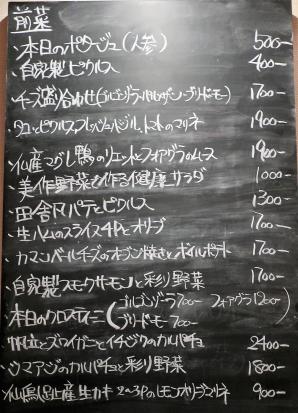 前菜
・本日のポタージュ(人参) 500-
・自家製ピクルス 400-
・チーズ盛り合わせ(ゴルゴンゾーラ・パルミジャーノ・ブリドモー) 1700-
・タコとピクルス、フレッシュバジル、トマトのマリネ 1900-
・仏産マグレ鴨のリエットとフォアグラのムース 1900-
・美作野菜で作る健康サラダ 1000-
・田舎風パテとピクルス 1300-
・生ハムのスライス4Pとオリーブ 1700-
・カマンベールチーズのオーブン焼きとボイルポテト 1700-
・自家製スモークサーモンと彩り野菜 1700-
・本日のクロスティーニ(ゴルゴンゾーラ700- フォアグラ1200-
ブリドモー700-
・帆立とズワイガニとイチジクのカルパチョ 2400-
・ウマアジのカルパチョと彩り野菜 1800-
産生カキ 2〜3Pのレモンオリーブマリネ 900-